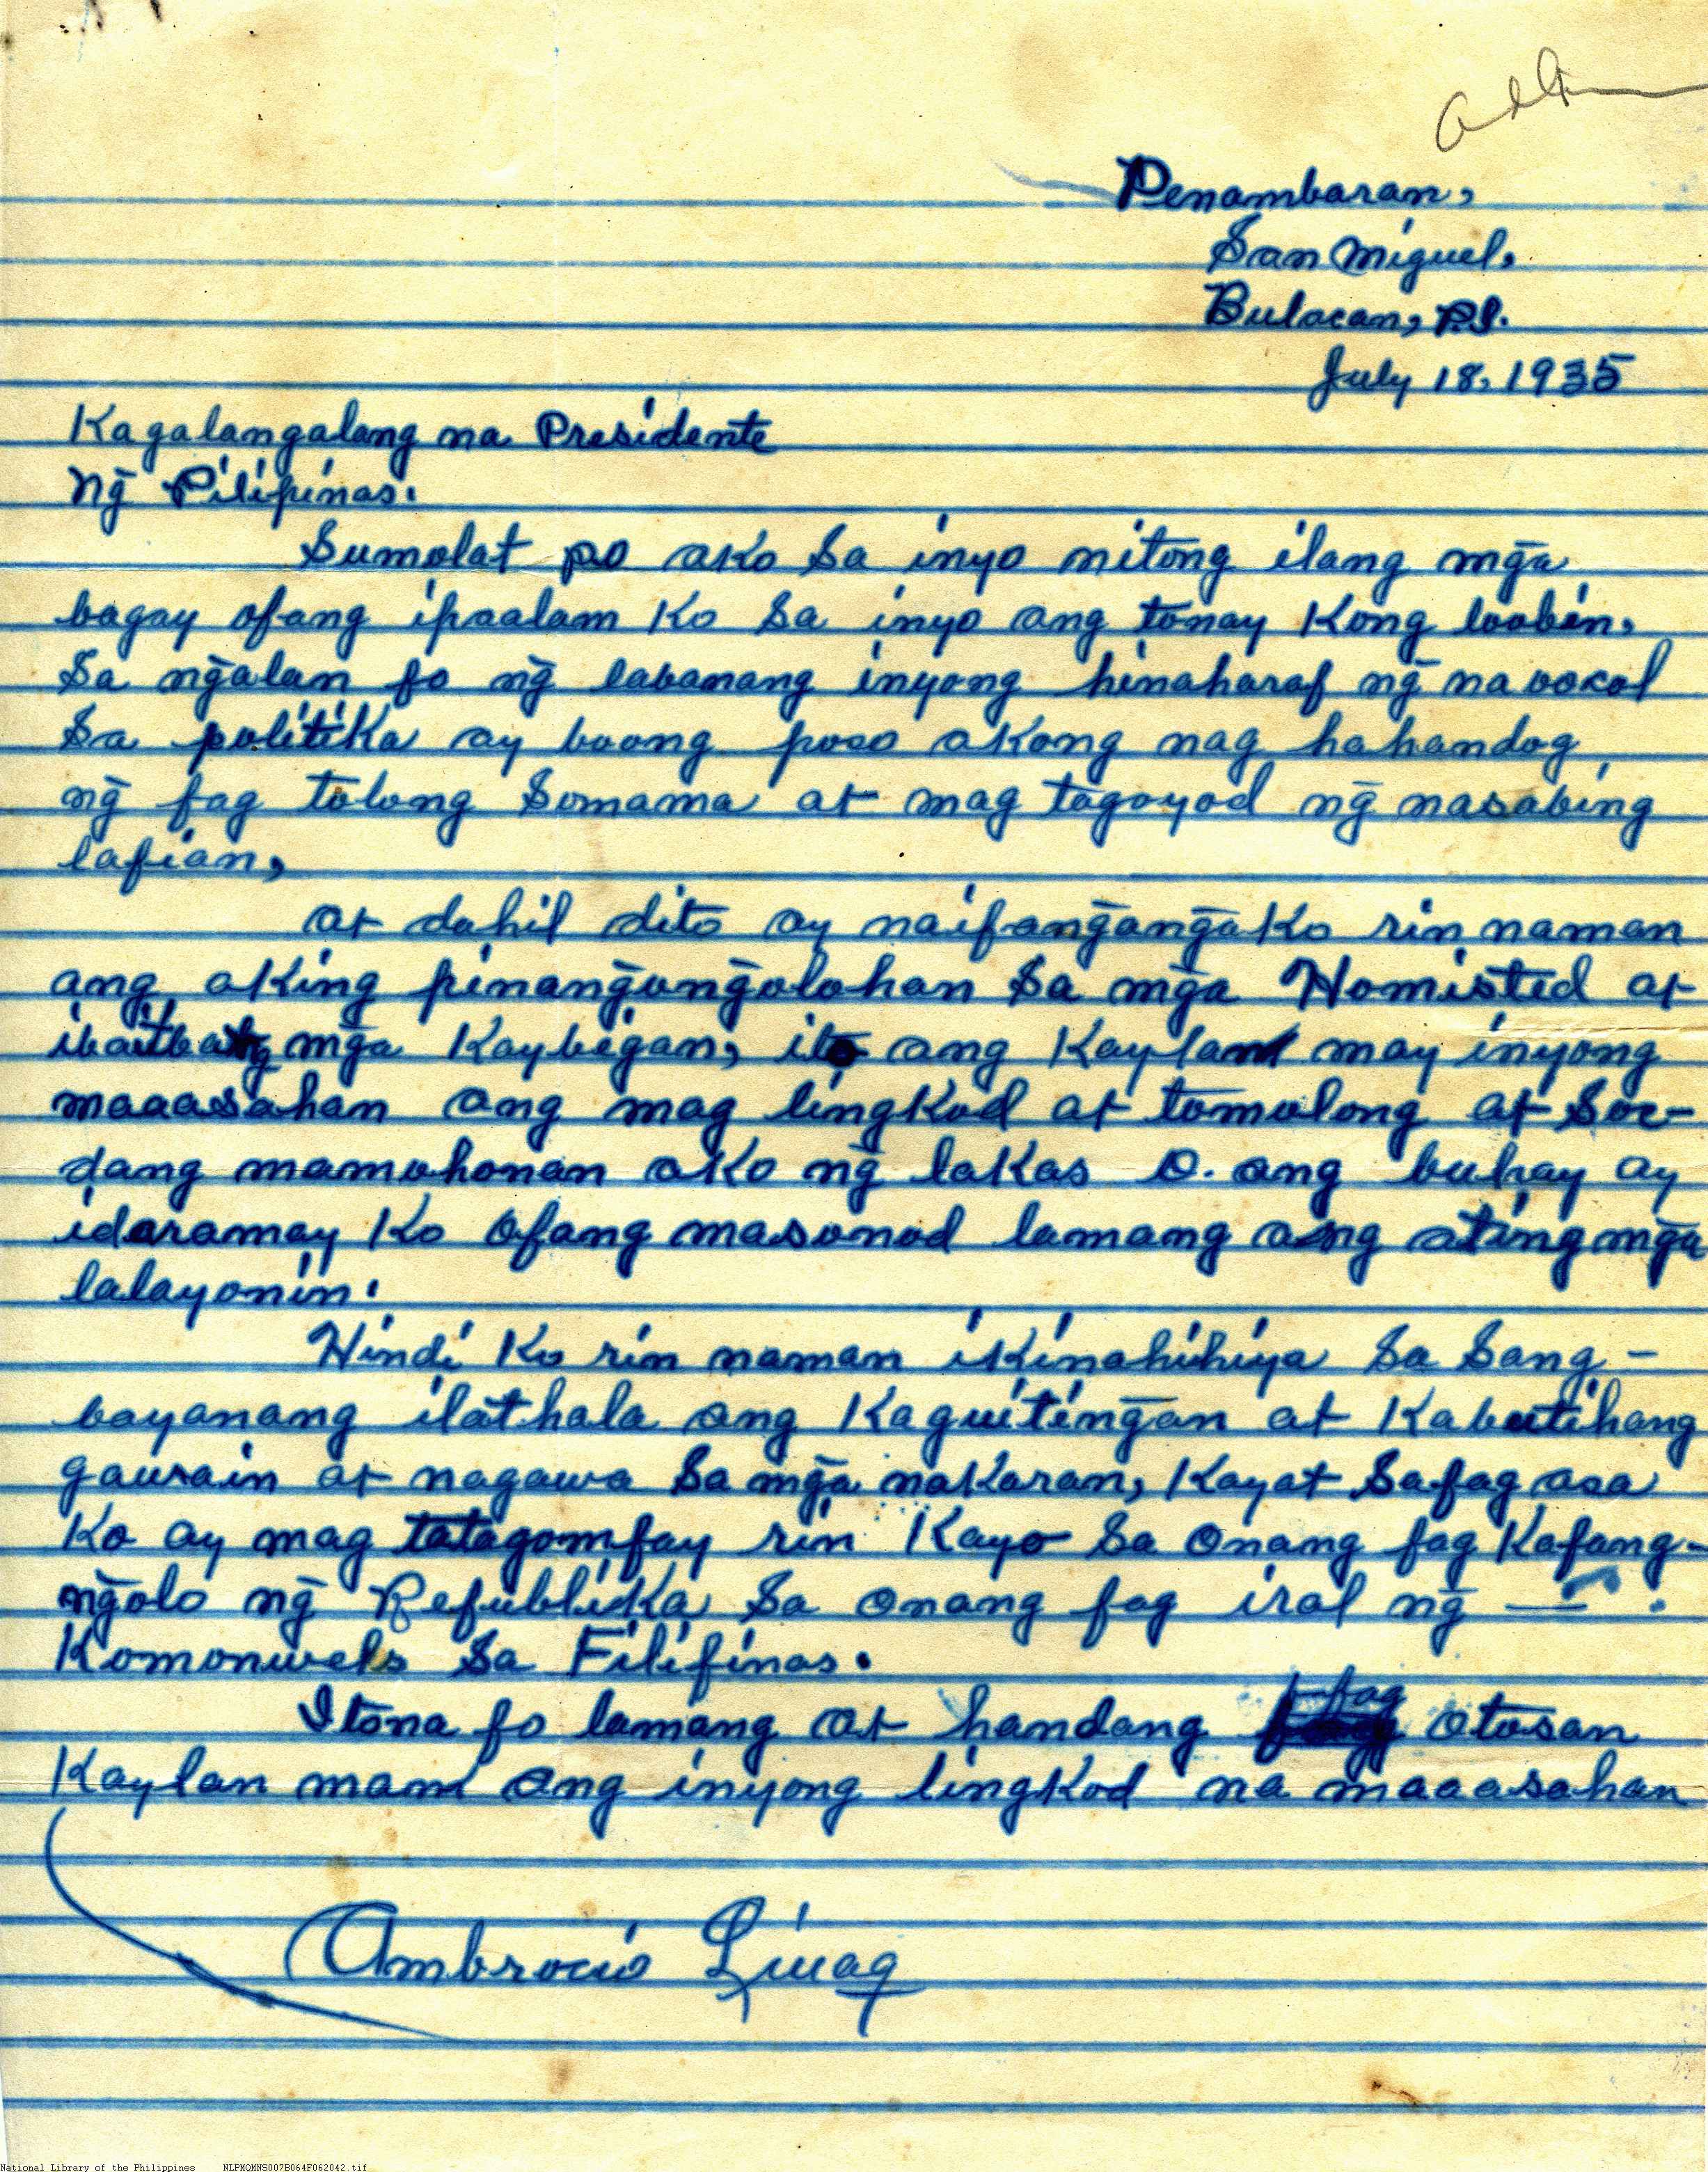 Penambaran,
San Miguel,
Bulacan, P.I.
July 18, 1935
Kagalangalang na Presidente
ng̃ Pilipinas.
Sumolat po ako sa inyo nitong ilang mg̃a
bagay ofang ipaalam ko sa inyo ang tonay kong looben,
sa ng̃alan fo ng̃ labanang inyong hinaharaf ng̃ na oocol
sa politika ay boong poso akong nag hahandog
ng̃ fag tolong somama at mag tagoyod ng̃ nasabing
lafian,
at dahil dito ay naifang̃ang̃ako rin naman
ang aking pinang̃ong̃olohan sa mg̃a Homisted at
ibaitbang mg̃a kaybegan, ito ang kaylan may inyong
maaasahan ang mag lingkod at tomolong at soc-
dang mamohonan ako ng̃ lakas o. ang buhay ay
idaramay ko ofang masonod lamang ang ating mg̃a
lalayonin.
Hindi ko rin naman ikinahihiya sa sang-
bayanang ilathala ang kaguiting̃an at kabutihang
gawain at nagawa sa mg̃a nakaran, kayat safag asa
ko ay mag tatagomfay rin kayo sa onang fag kafang-
ng̃olo ng̃ Refublika sa onang fag iral ng̃ — .
Komonwels sa Filifinas.
Itona fo lamang at handang fag otosan
kaylan mam ang inyong lingkod na maaasahan
Ambrocio
National Library of the Philippines NLPMQMNS007B064F062042.tif